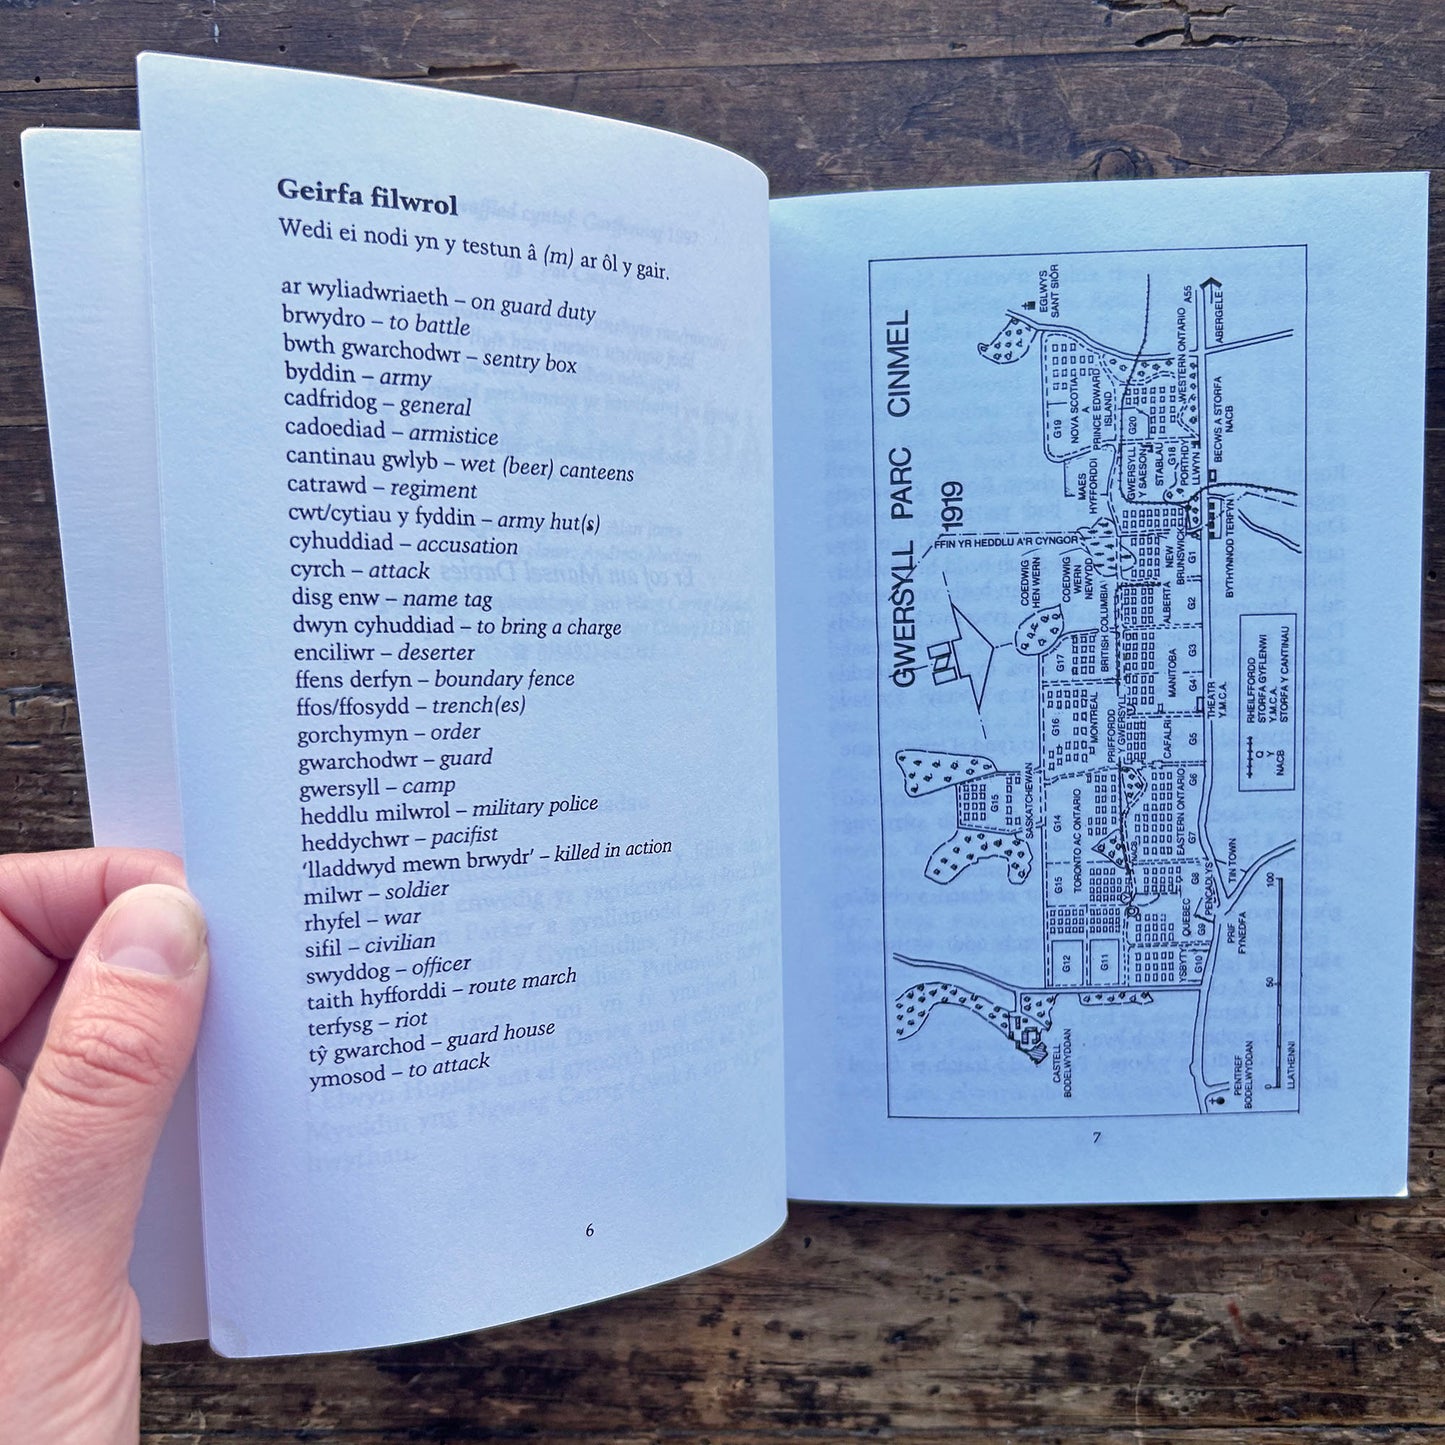 Geirfa filwrol
Wedi ei nodi yn y testun â (m) ar ôl y gair.
ar wyliadwriaeth – on guard duty
brwydro – to battle
bwth gwarchodwr – sentry box
byddin – army
cadfridog – general
cadoediad – armistice
cantinau gwlyb – wet (beer) canteens
catrawd – regiment
cwt/cytiau y fyddin – army hut(s)
cyhuddiad – accusation
cyrch – attack
disg enw – name tag
dwyn cyhuddiad – to bring a charge
enciliwr – deserter
ffens derfyn – boundary fence
ffos/ffosydd – trench(es)
gorchymyn – order
gwarchodwr – guard
gwersyll – camp
heddlu milwrol – military police
heddychwr – pacifist
'lladdwyd mewn brwydr' – killed in action
milwr – soldier
rhyfel – war
sifil – civilian
swyddog – officer
taith hyfforddi – route march
terfysg – riot
tŷ gwarchod – guard house
ymosod – to attack
6
GWERSYLL PARC CINMEL
1919
EGLWYS
SANT SIÔR
FFIN YR HEDDLU A'R CYNGOR
COEDWIG
HEN WERN
COEDWIG
WERN
NEWYDD
MAES
HYFFORDDI
G19
NOVA SCOTIA
A
PRINCE EDWARD
ISLAND
G20
GWERSYLL
Y SAESON
STABLAU
G18
PORTHDY
LLWYN
WESTERN ONTARIO
A55
ABERGELE
BECWS A STORFA
NACB
BYTHYNNOD TERFYN
G17
BRITISH COLUMBIA
ALBERTA
NEW
BRUNSWICK
G1
G2
G3
G4
G5
G6
G7
G8
G9
G10
MANITOBA
G16
MONTREAL
PRIFFORDD
Y GWERSYLL
CAFALRI
THEATR
Y.M.C.A.
G15
SASKATCHEWAN
G14
TORONTO AC ONTARIO
G15
NACB
EASTERN ONTARIO
QUEBEC
PENCADLYS
TIN TOWN
G12
G11
YSBYTY
PRIF
FYNEDFA
CASTELL
BODELWYDDAN
PENTREF
BODELWYDDAN
RHEILFFORDD
Q STORFA GYFLENWI
Y Y.M.C.A.
NACB STORFA Y CANTINAU
0 50 100
LLATHENNI
7